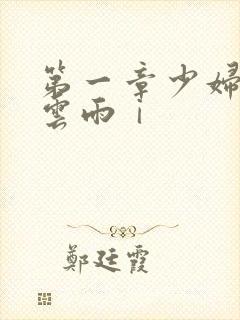 第一章少婦
雲雨丨
鄭廷霞